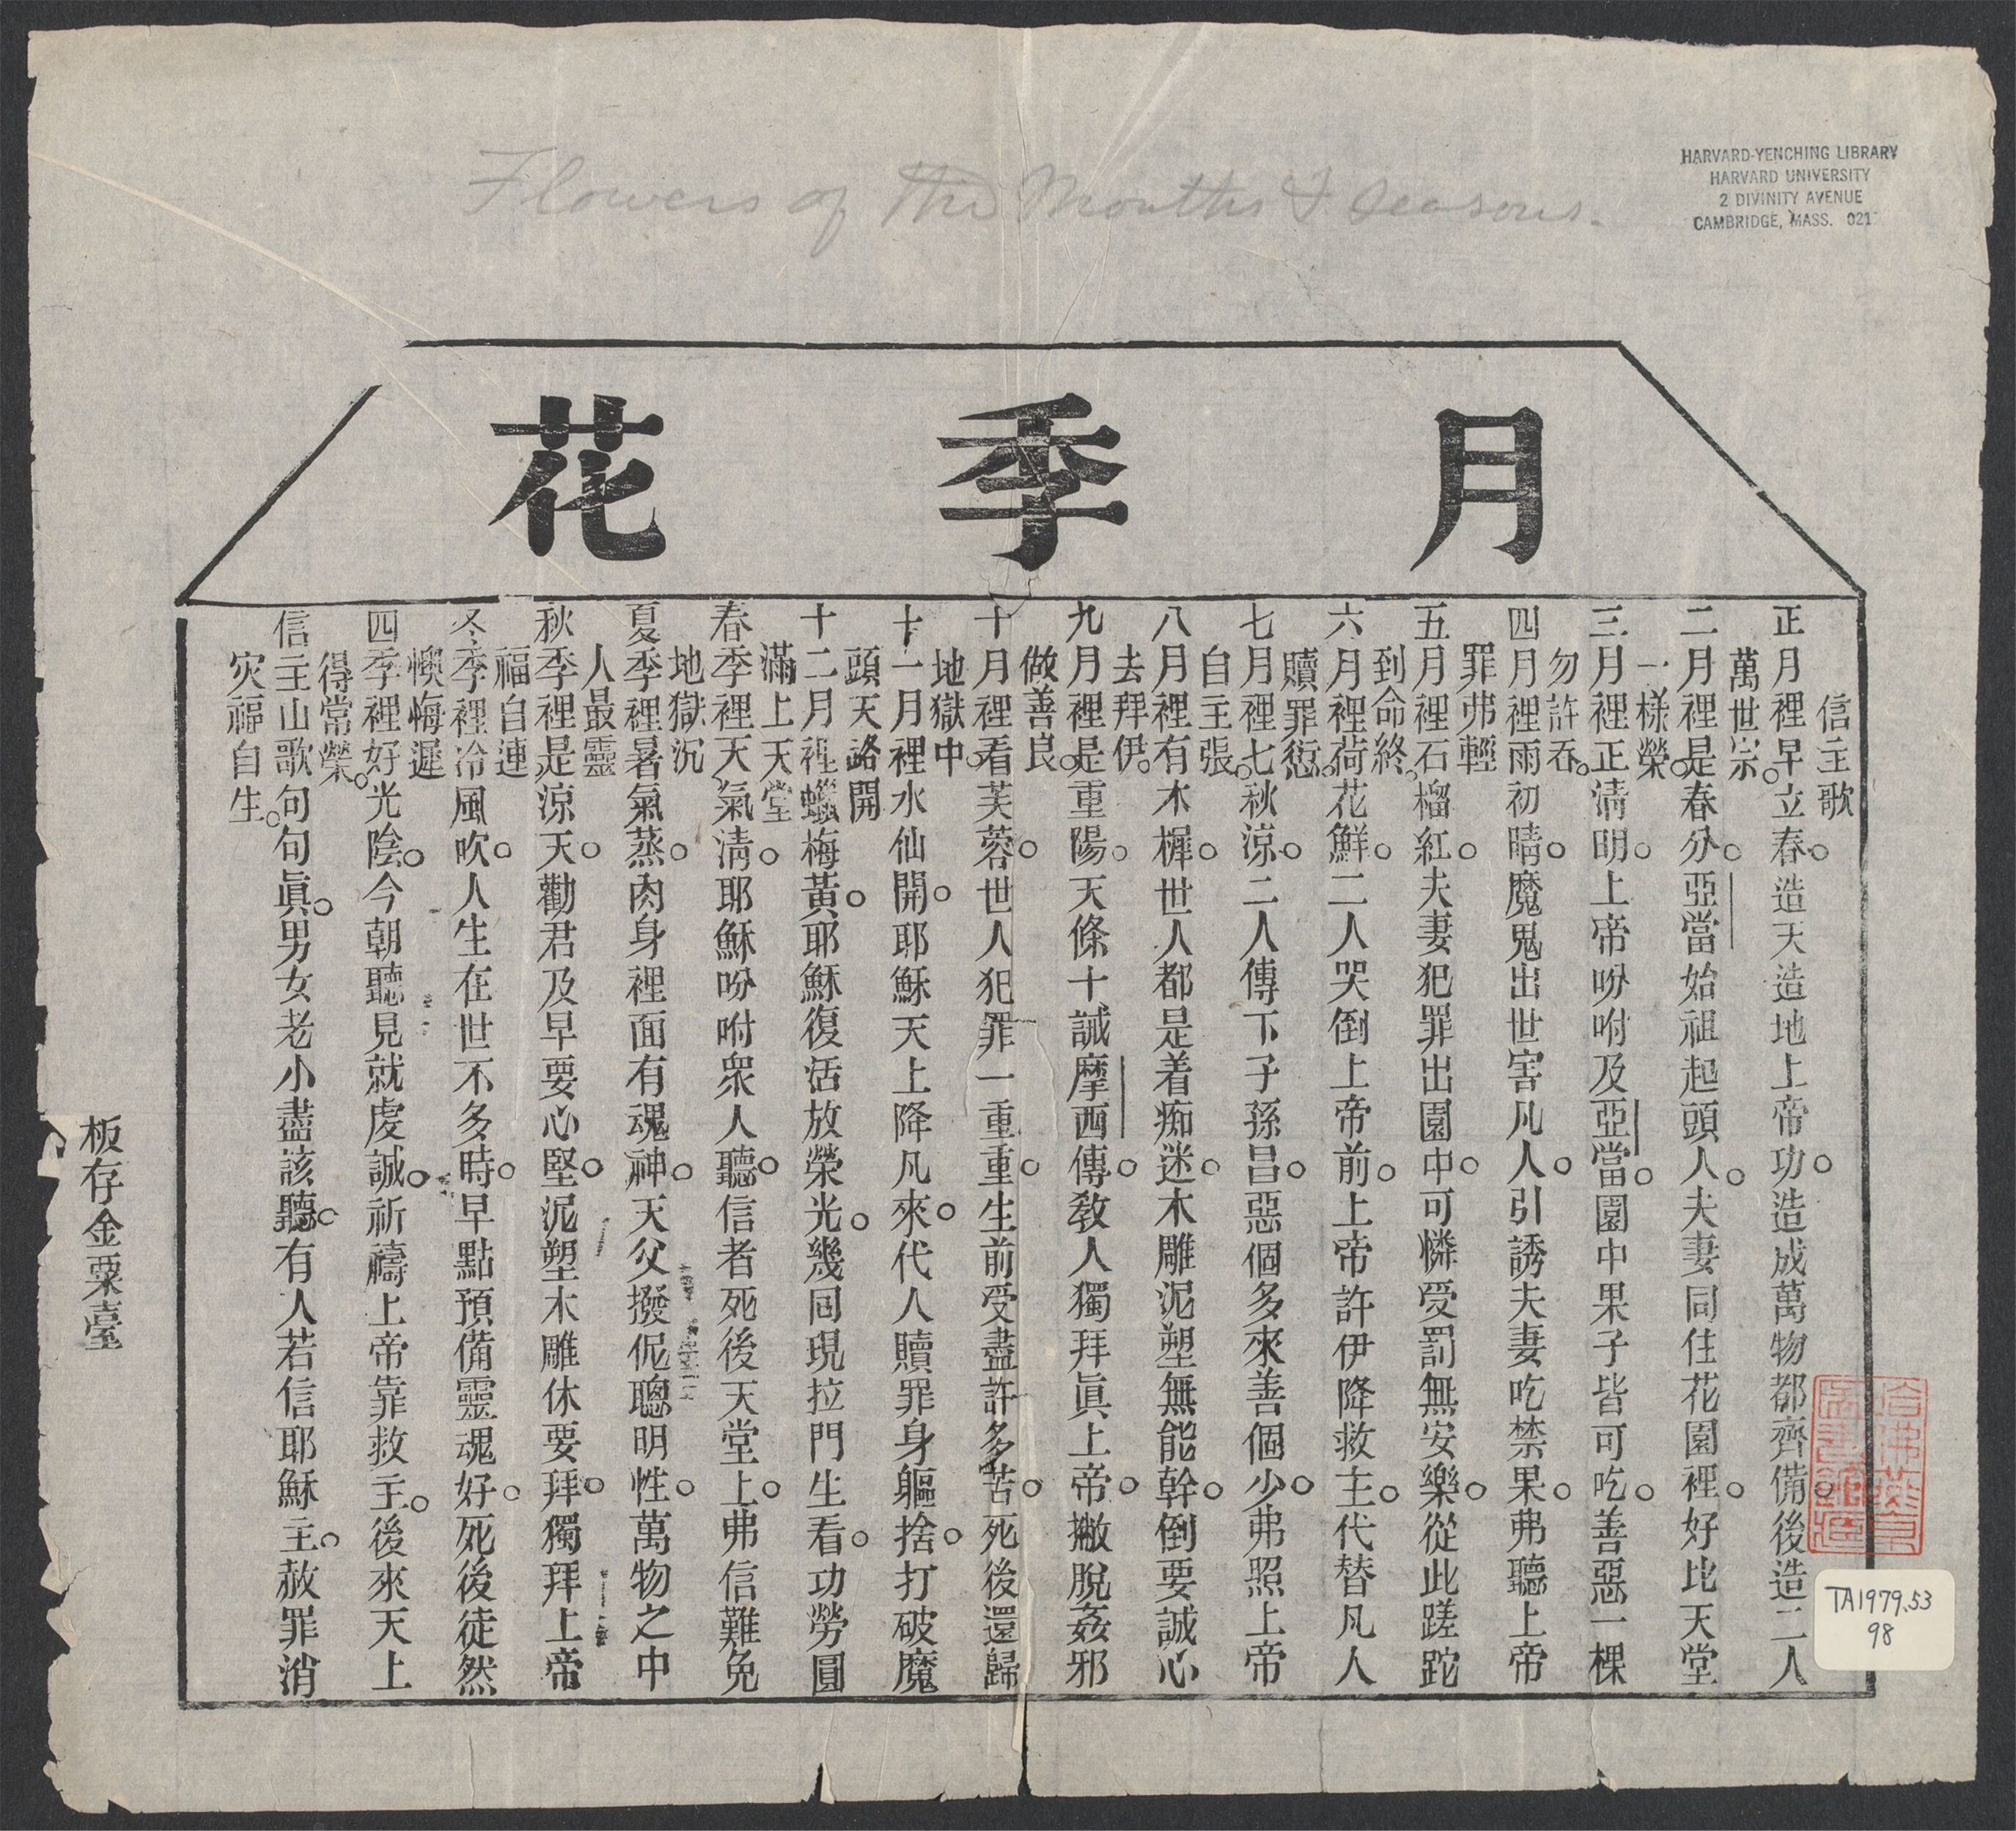 Flowers of the Months & Seasons.
HARVARD-YENCHING LIBRARY
HARVARD UNIVERSITY
2 DIVINITY AVENUE
CAMBRIDGE, MASS. 021
月季花
信主歌
正月裡早立春。造天造地上帝功。造成萬物都齊備。後造二人
萬世宗。
二月裡是春分。亞當始祖起頭人。夫妻同住花園裡。好比天堂
一樣榮。
三月裡正清明。上帝吩咐及亞當。園中果子皆可吃。善惡一棵
勿許吞。
四月裡雨初晴。魔鬼出世害凡人。引誘夫妻吃禁果。弗聽上帝
罪弗輕
五月裡石榴紅。夫妻犯罪出園中。可憐受罰無安樂。從此蹉跎
到命終。
六月裡荷花鮮。二人哭倒上帝前。上帝許伊降救主。代替凡人
贖罪愆。
七月裡七秋涼。二人傳下子孫昌。惡個多來善個少。弗照上帝
自主張。
八月裡有木樨。世人都是着痴迷。木雕泥塑無能幹。倒要誠心
去拜伊。
九月裡是重陽。天條十誡摩西傳。教人獨拜眞上帝。撇脫姦邪
做善良。
十月裡看芙蓉。世人犯罪一重重。生前受盡許多苦。死後還歸
地獄中。
十一月裡水仙開。耶穌天上降凡來。代人贖罪身軀捨。打破魔
頭天路開
十二月裡蠟梅黃。耶穌復活放榮光。幾囘現拉門生看。功勞圓
滿上天堂
春季裡天氣清。耶穌吩咐衆人聽。信者死後天堂上。弗信難免
地獄沉
夏季裡暑氣蒸。肉身裡面有魂神。天父撥伲聰明性。萬物之中
人最靈
秋季裡是涼天。勸君及早要心堅。泥塑木雕休要拜。獨拜上帝
福自連
冬季裡冷風吹。人生在世不多時。早點預備靈魂好。死後徒然
懊悔遲
四季裡好光陰。今朝聽見就虔誠。祈禱上帝靠救主。後來天上
得常榮。
信主山歌句句眞。男女老小盡該聽。有人若信耶穌主。赦罪消
灾福自生。
板存金粟臺
TA1979.53
98